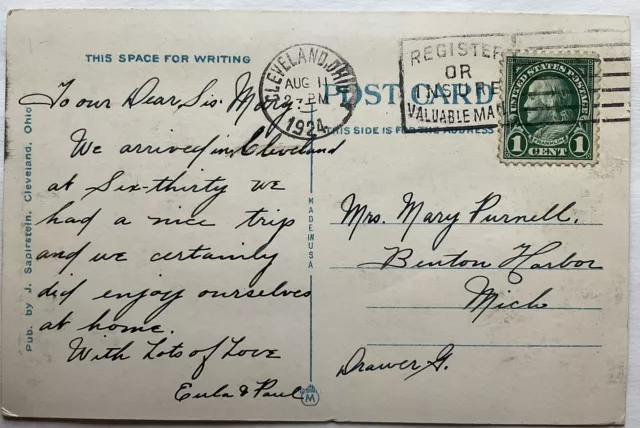 THIS SPACE FOR WRITING
POST CARD
THIS SIDE IS FOR THE ADDRESS
CLEVELAND, OHIO
AUG 11
PM
1924
REGISTER
OR
INSURE
VALUABLE MAIL
UNITED STATES POSTAGE
FRANKLIN
1 CENT 1
To our Dear Sis. Mary
We arrived in Cleveland
at Six-thirty we
had a nice trip
and we certainly
did enjoy ourselves
at home.
With Lots of Love
Eula & Paul
Mrs. Mary Purnell.
Benton Harbor
Mich
Drawer G.
Pub. by J. Sapirstein, Cleveland, Ohio
MADE IN USA
M